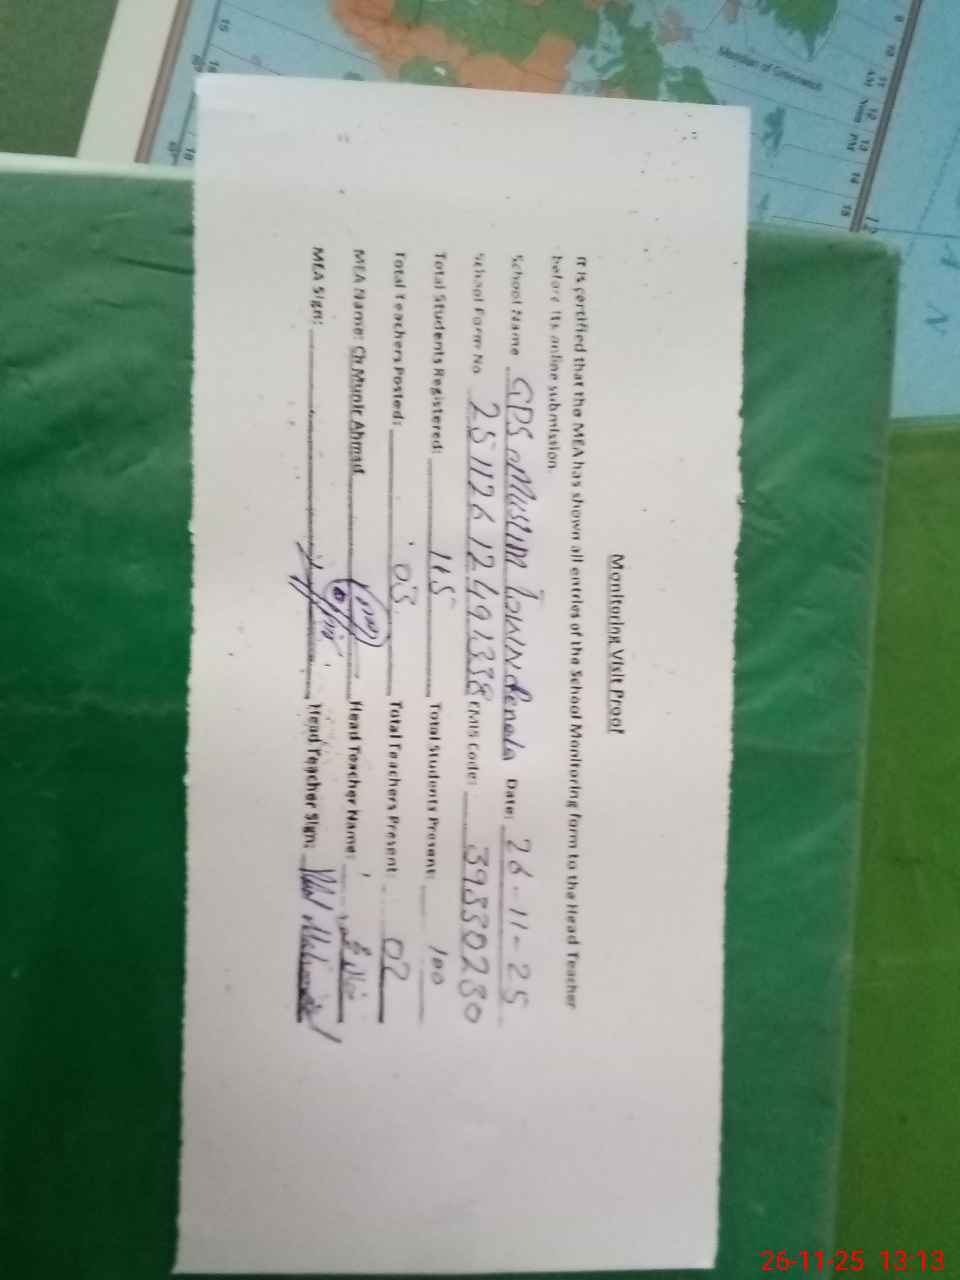 Monitoring Visit Proof
It is certified that the MEA has shown all entries of the School Monitoring form to the Head Teacher
before its online submission.
School Name GPS Muslim Town Date: 26-11-25
School Form No 25112612491338 EMIS Code: 39330230
Total Students Registered: 115 Total Students Present: 100
Total Teachers Posted: 03 Total Teachers Present: 02
MEA Name: Ch Munir Ahmad Head Teacher Name:
MEA Sign: Head Teacher Sign:
Meridian of Greenwich
26-11-25 13:13